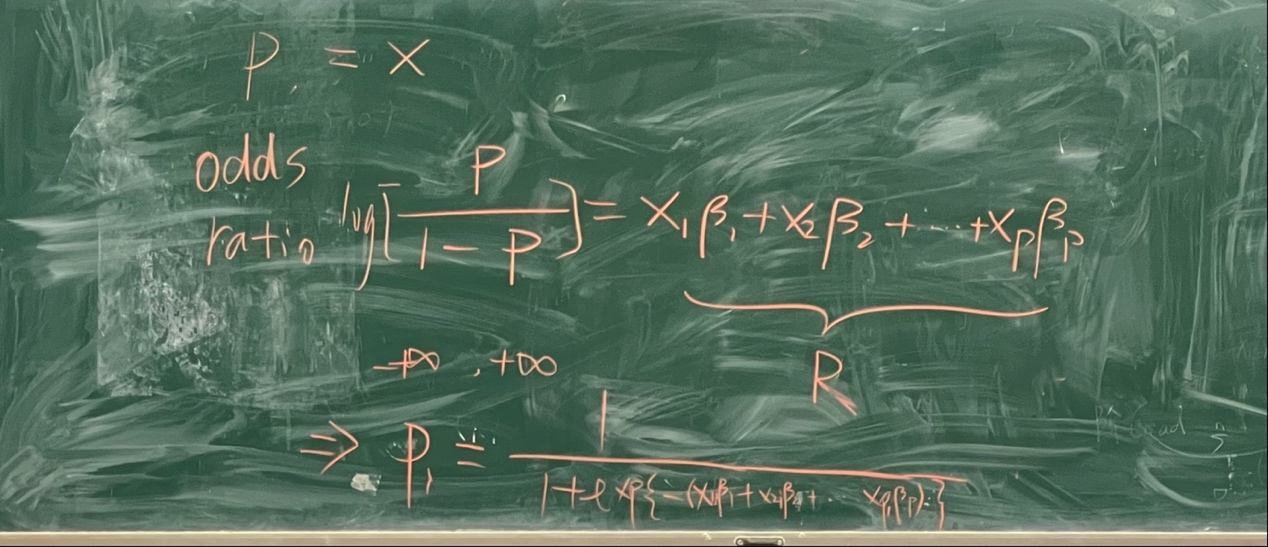 P = X
odds
ratio log[P/(1-P)] = X₁β₁+X₂β₂+...+Xₚβₚ
R
-∞, +∞
⇒ P = 1/(1+exp{-(X₁β₁+X₂β₂+... Xₚβₚ)})